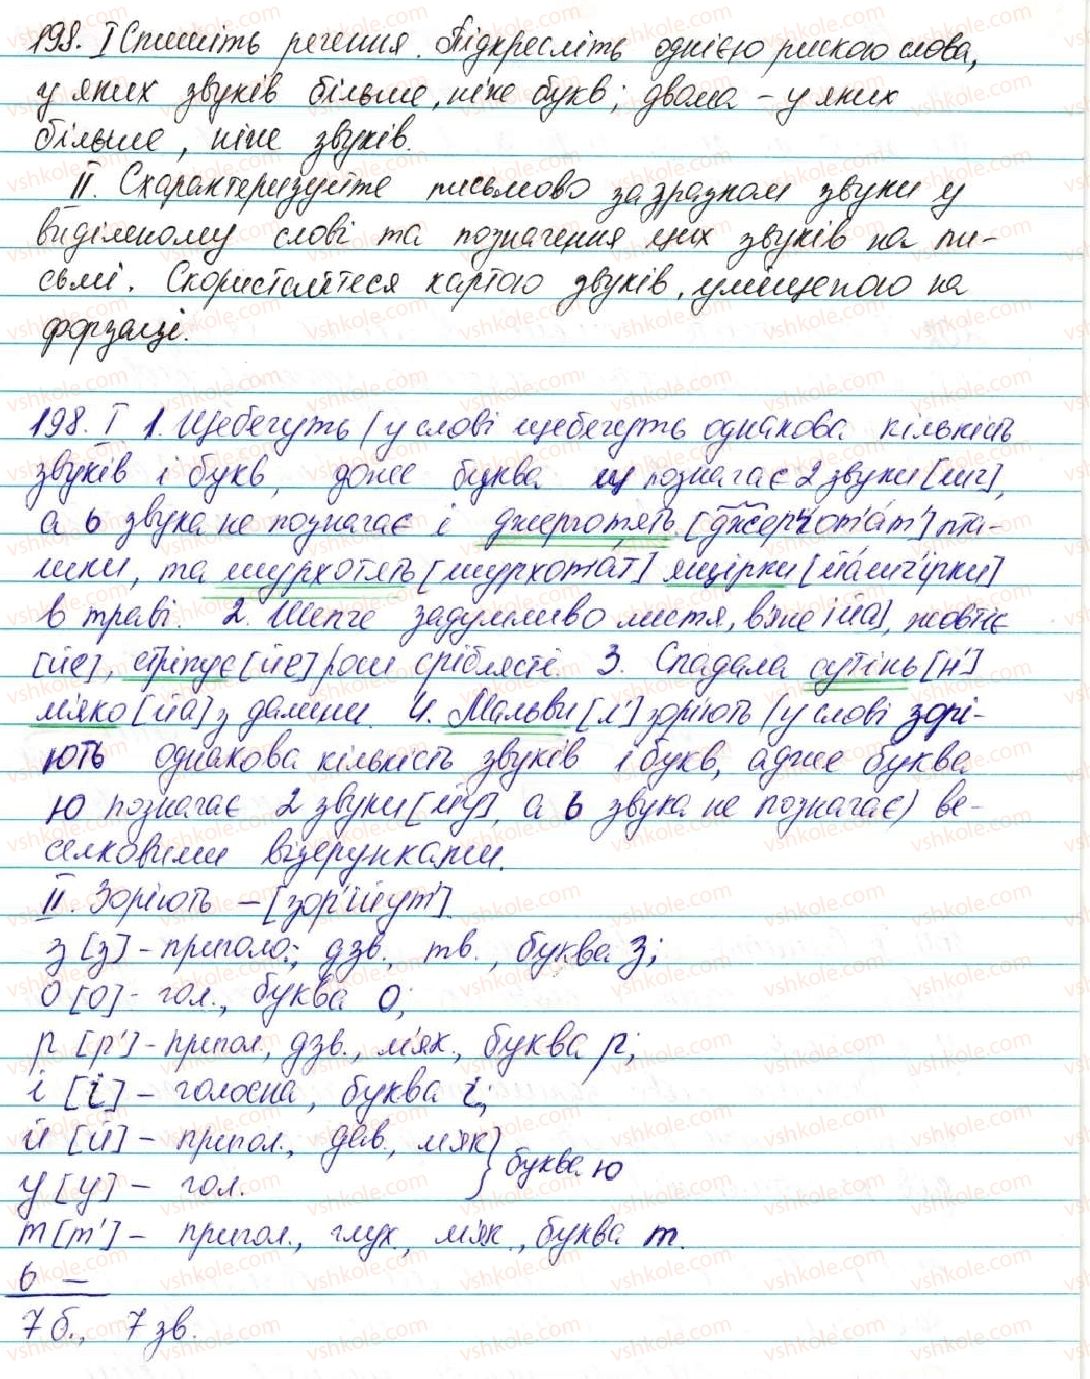 198. I Спишіть речення. Підкресліть однією рискою слова,
у яких звуків більше, ніж букв; двома – у яких
більше, ніж звуків.
II. Схарактеризуйте письмово за зразком звуки у
виділеному слові та позначення цих звуків на пи-
сьмі. Скористайтеся картою звуків, уміщеною на
форзаці.
198. I 1. Щебечуть (у слові щебечуть однакова кількість
звуків і букв, адже буква щ позначає 2 звуки [шч],
а ь звука не позначає і джерготять [джерготáт'] пта-
шки, та шурхотять [шурхотáт'] ящірки [йáшч'ірки]
в траві. 2. Шепче задумливо листя, в'яне [йа], жовтіє
[йе], стріпує [йе] роси сріблясті. 3. Спадала сутінь [н']
м'яко [йа] з далини. 4. Мальви [л'] зоріють (у слові зорі-
ють однакова кількість звуків і букв, адже буква
ю позначає 2 звуки [йу], а ь звука не позначає) ве-
селковими візерунками.
II. Зоріють – [зор'ійут']
з [з] – приголос., дзв., тв., буква з;
о [о] – гол., буква о;
р [р'] – пригол., дзв., м'як., буква р;
і [і] – голосна, буква і;
й [й] – пригол., дзв., м'як } буква ю
у [у] – гол.
т [т'] – пригол., глух., м'як., буква т.
ь –
7 б., 7 зв.